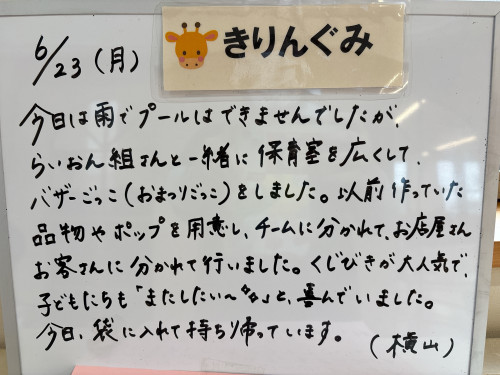 きりんぐみ
6/23(月)
今日は雨でプールはできませんでしたが、
らいおん組さんと一緒に保育室を広くして、
バザーごっこ(おまつりごっこ)をしました。以前作っていた
品物やポップを用意し、チームに分かれて、お店屋さん
お客さんに分かれて行いました。くじびきが大人気で、
子どもたちも「またしたい〜!!」と、喜んでいました。
今日、袋に入れて持ち帰っています。
(横山)